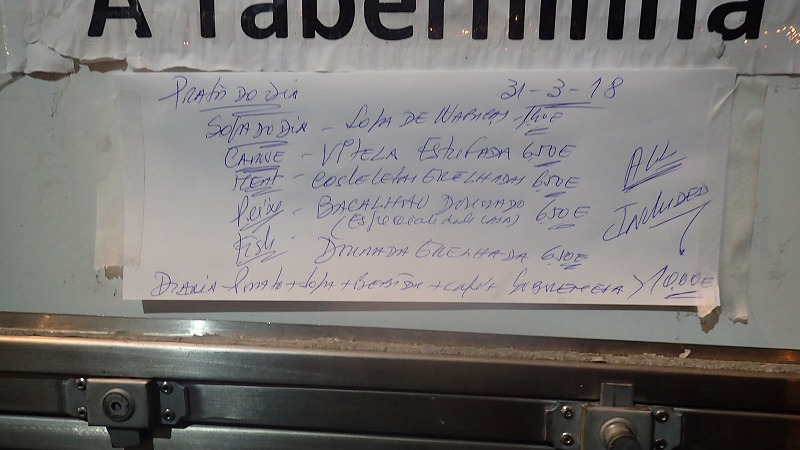 A Taberninha
Prato do Dia 31-3-18
Sopa do Dia - Sopa de Nabiças 1,40€
Carne - Vitela Estufada 6,50€
Meat - Costeletas Grelhadas 6,50€
Peixe - Bacalhau Dourado 6,50€
(Especialidade Casa)
Fish - Dourada Grelhada 6,50€
All
Included
Diaria - Prato + Sopa + Bebida + Café + Sobremesa > 10,00€